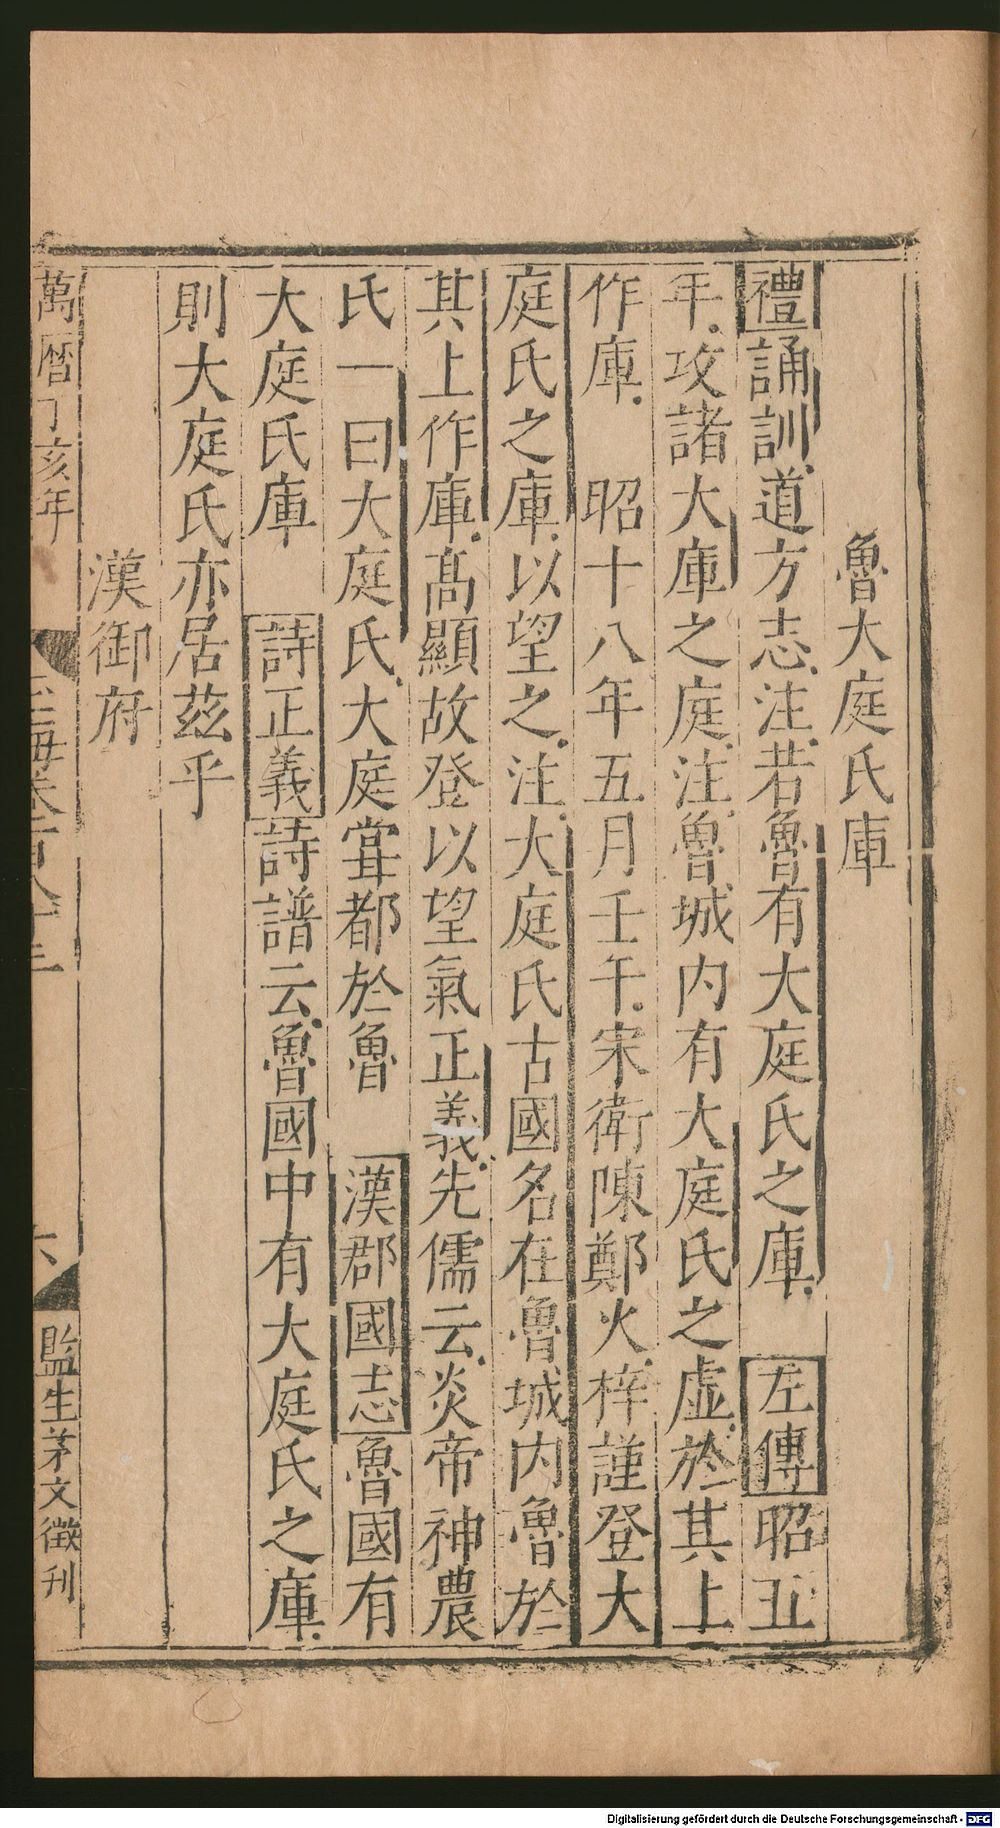 魯大庭氏庫
禮誦訓道方志注若魯有大庭氏之庫 左傳昭五
年攻諸大庫之庭注魯城内有大庭氏之虚於其上
作庫 昭十八年五月壬午宋衛陳鄭火梓謹登大
庭氏之庫以望之注大庭氏古國名在魯城内魯於
其上作庫髙顯故登以望氣正義先儒云炎帝神農
氏一曰大庭氏大庭甞都於魯 漢郡國志魯國有
大庭氏庫 詩正義詩譜云魯國中有大庭氏之庫
則大庭氏亦居茲乎
漢御府
萬曆丁亥年 玉海卷百八十三 六 監生茅文徵刊
Digitalisierung gefördert durch die Deutsche Forschungsgemeinschaft - DFG